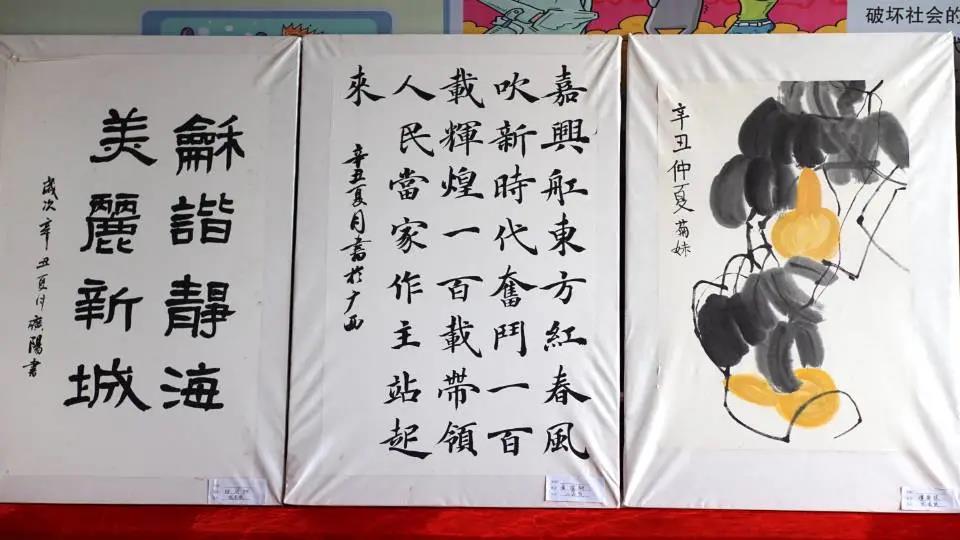 破坏社会的
龢諧靜海
美麗新城
歲次辛丑夏
陽書
嘉興舡東方紅春風
吹新時代奮鬥一百
載輝煌一百載帶領
人民當家作主站起
來
辛丑夏月書於广西
辛丑仲夏菊妹